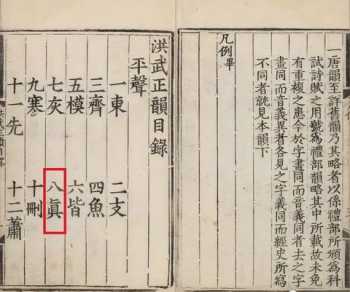 一唐韻至許舊韻乃其略者以係禮部所頒爲科
試詩賦之用號爲禮部韻略其中所載故未免
有重複之患今於字畫同而音義同者去之字
畫同而音義異者各見之字義同而經史所寫
不同者就見本韻下
凡例畢
洪武正韻目錄
平聲
一東 二支
三齊 四魚
五模 六皆
七灰 八眞
九寒 十刪
十一先 十二蕭